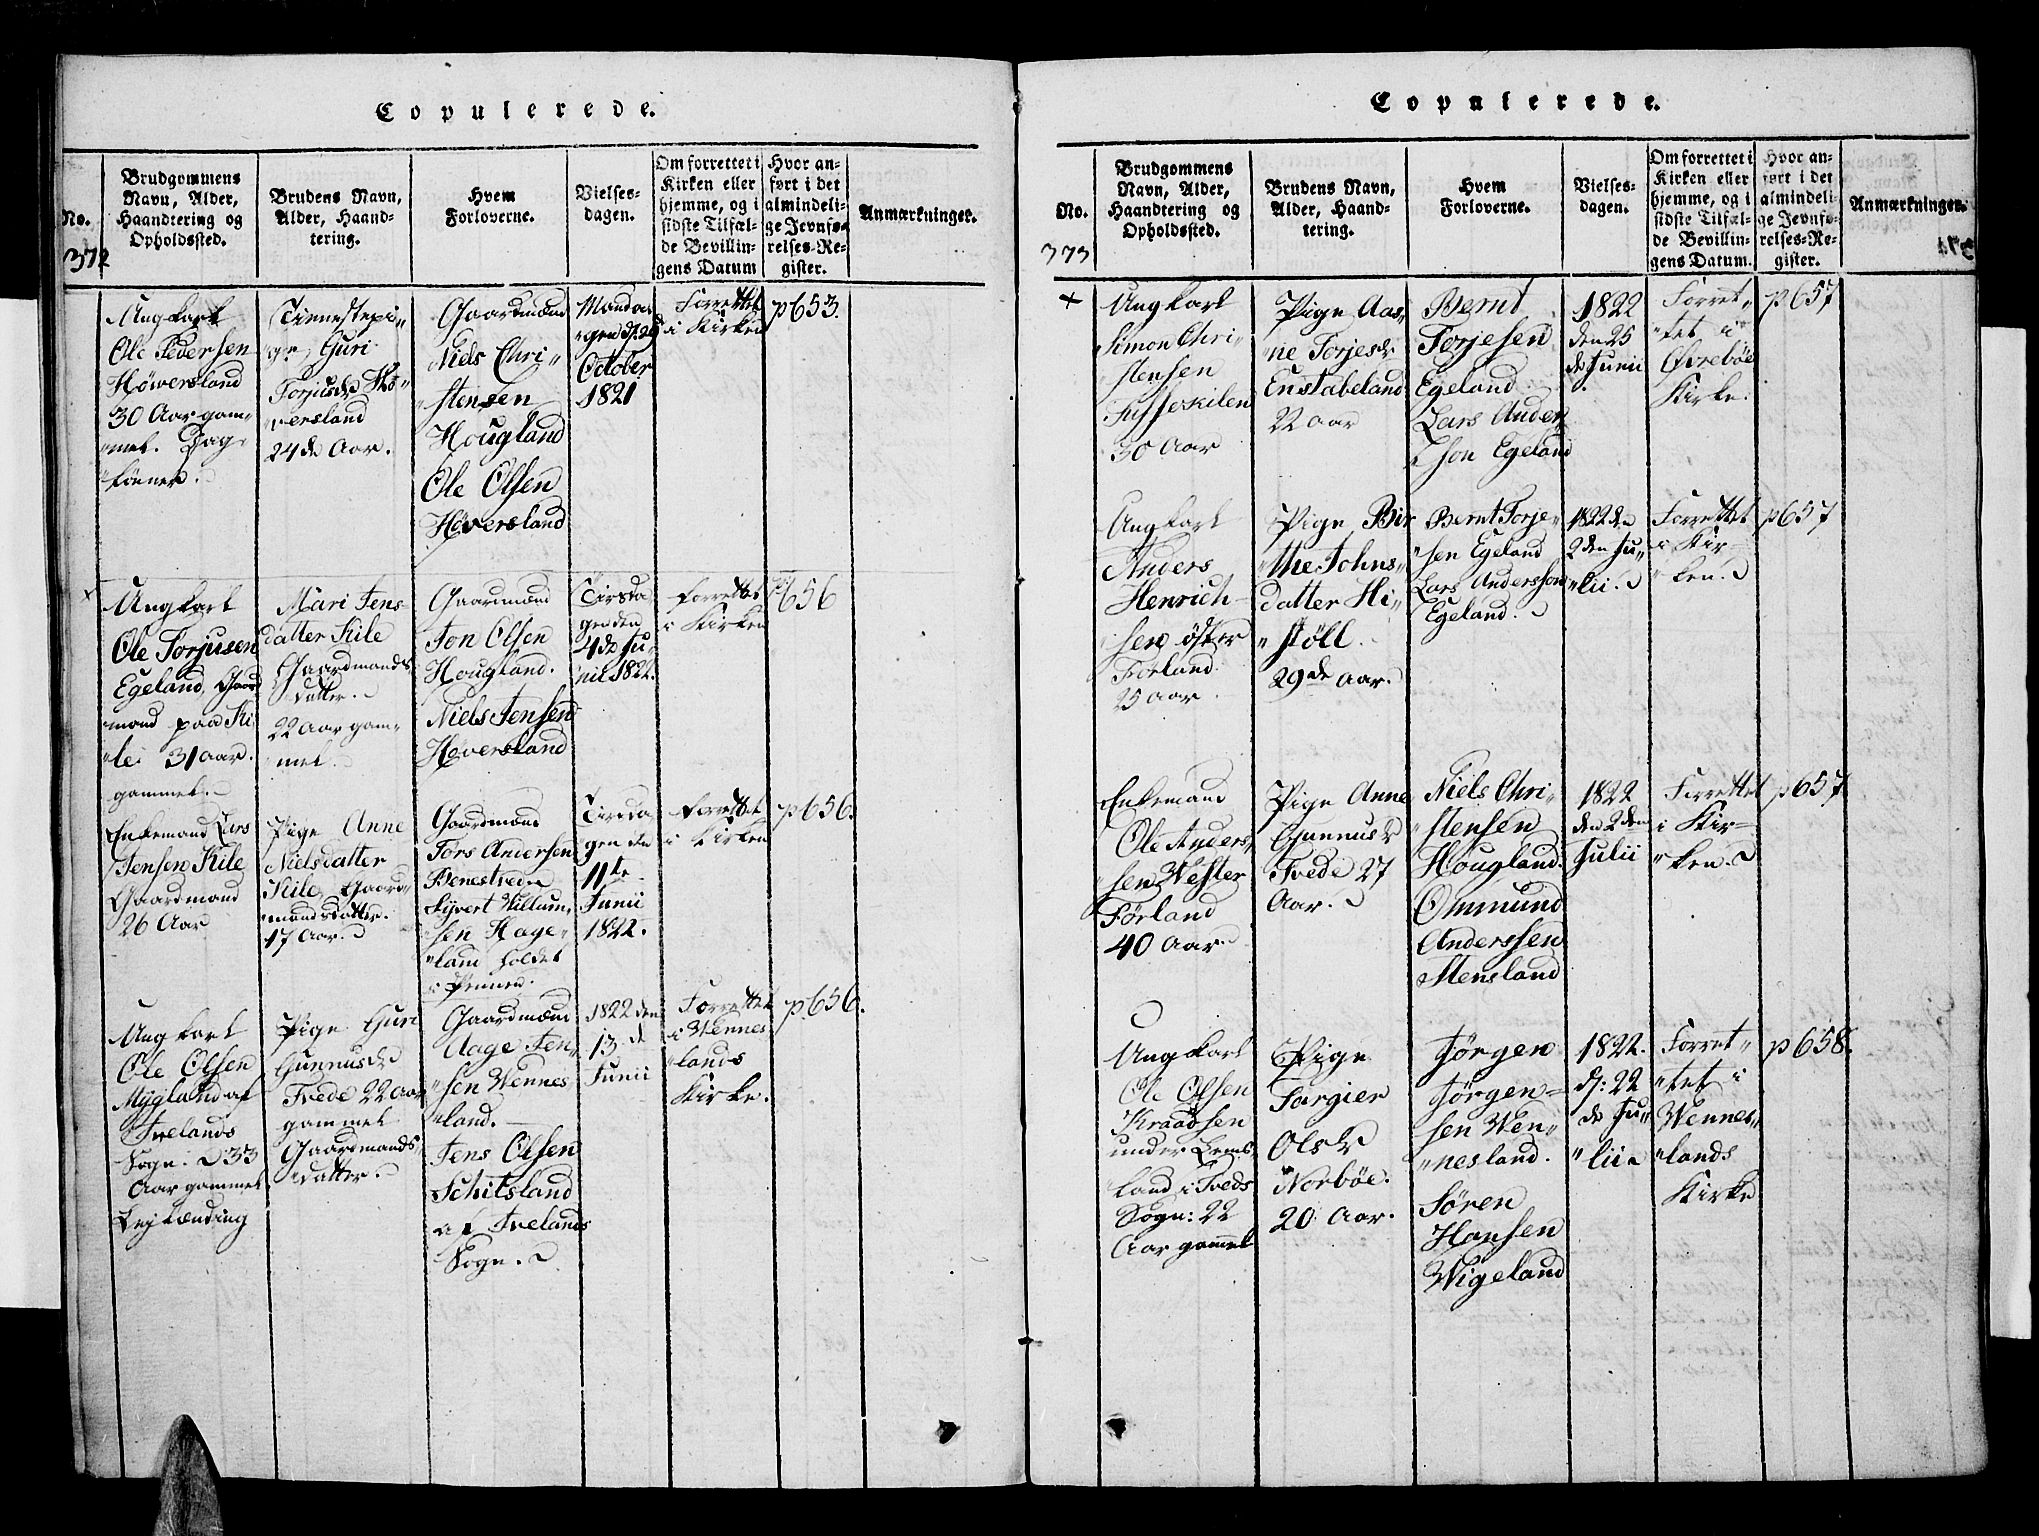 Copulerede.
No.
Brudgommens
Navn, Alder,
Haandtering og
Opholdssted.
Brudens Navn,
Alder, Haand-
tering.
Hvem
Forloverne.
Vielses-
dagen.
Om forrettet i
Kirken eller
hjemme, og i
sidste Tilfæl-
de Bevillin-
gens Datum
Hvor an-
ført i det
almindeli-
ge Jevnfø-
relses-Re-
gister.
Anmærkninger.
372
Ungkarl
Ole Pedersen
Höwersland
30 Aar gam-
mel. Dag-
lönner.
Tienestepi-
ge, Guri
Torjusdr Hö-
versland
24de Aar.
Gaardmænd
Niels Chri-
stensen
Hougland
Ole Olsen
Höversland
Mandan-
gen d: 29
October
1821
Forrettet
i Kirken
p653.
Ungkarl
Ole Torjusen
Egeland, Gaard
mand paa Ki-
le 31 Aar
gammel.
Mari Jens-
datter Kile
Gaardmands
datter.
22 Aar gam-
mel.
Gaardmænd
Jon Olsen
Hougland.
Niels Jensen
Höversland
Tirsda-
gen den
4de Ju-
nii 1822.
Forrettet
i Kirken
p656
Enkemand Lars
Jensen Kile
Gaardmand
26 Aar
Pige Anne
Nielsdatter
Kile, Gaard-
mandsdatter.
17 Aar.
Gaardmænd
Tors Andersen
Benestvedn
Syvert Willum-
sen Hage-
land holdet
i Pennen.
Tirsda-
gen den
11te
Junii
1822.
Forrettet
i Kirken
p656.
Ungkarl
Ole Olsen
Mygland af
Ivelands
Sogn. 33
Aar gammel.
Lejlænding
Pige Guri
Gunnusdr
Tvede 22 Aar
gammel
Gaardmands
datter.
Gaardmænd
Aage Jen-
sen Wennes
land.
Jens Olsen
Schitsland
af Ivelands
Sogn.
1822 den
13de
Junii
Forrettet
i Wennes
lands
Kirke.
p656.
Copulerede.
No.
Brudgommens
Navn, Alder,
Haandtering og
Opholdssted.
Brudens Navn,
Alder, Haand-
tering.
Hvem
Forloverne.
Vielses-
dagen.
Om forrettet i
Kirken eller
hjemme, og i
sidste Tilfæl-
de Bevillin-
gens Datum.
Hvor an-
ført i det
almindeli-
ge Jevnfø-
relses-Re-
gister.
Anmærkninger.
373
Ungkarl
Simon Chri-
stensen
30 Aar
Pige Aas-
ne Torjesdr
Enstabeland
22 aar
Bernt
Torjesen
Egeland
Lars Ander-
sson Egeland
1822
den 25
de Junii
Forret-
tet i
Øvrebøe
Kirke.
p657
Ungkarl
Anders
Henrich-
sen öster
Förland
25 aar
Pige Bir
the Johns-
datter Hi-
stöll
29de Aar.
Bernt Torje-
sen Egeland
Lars Andersson
Egeland.
1822 de
2den Ju-
lii.
Forrettet
i Kir-
ken.
p657
Enkemand
Ole Anders-
sen Wester
Förland
40 Aar.
Pige Anne
Gunnusdr
Tvede 27
Aar.
Niels Chri-
stensen
Hougland.
Ommund
Anderssen
Stensland
1822
den 2den
Julii
Forrettet
i Kir-
ken.
p657
Ungkarl
Ole Olsen
Kraaosen
under Eems
land i Tveds
Sogn: 22
Aar gammel
Pige
Targier
Olsdr
Norböe.
20 Aar.
Jörgen
Jörgen-
sen Wen-
nesland.
Sören
Hansen
Wigeland
1822.
d: 22
de Ju-
lii
Forret-
tet i
Wennes-
lands
Kirke
p658.